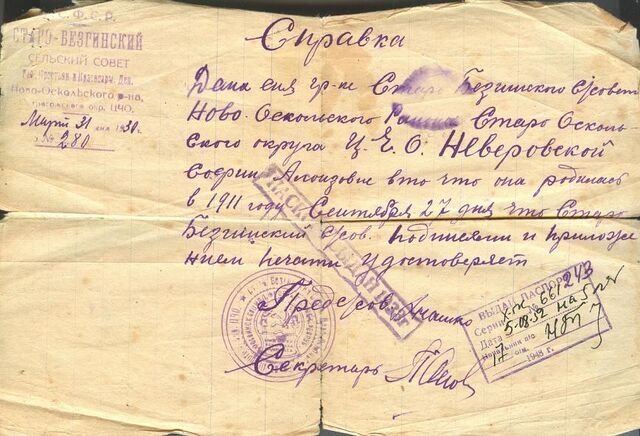 Р.С.Ф.С.Р.
СТАРО-БЕЗГИНСКИЙ
СЕЛЬСКИЙ СОВЕТ
Раб. Крестьян. и Красноарм. Деп.
Ново-Оскольского р-на,
окр. ЦЧО.
Март 31 дня 1930г.
№ 280
Справка
Дана сия гр-ке Старо Безгинского с/совет
Ново-Оскольского Района Старо Осколь
ского округа Ц.Ч.О. Неверовской
Софии Алоизовне в то что она родилась
в 1911 году Сентября 27 дня что Старо
Безгинский с/сов. подписями и приложе
нием печати удостоверяет
Предсов.
Секретарь
ВЫДАН ПАСПОРТ
Серия 243
Дата 5.08.52 на 5 лет
Начальник п/с
17 отм.
1948 г.